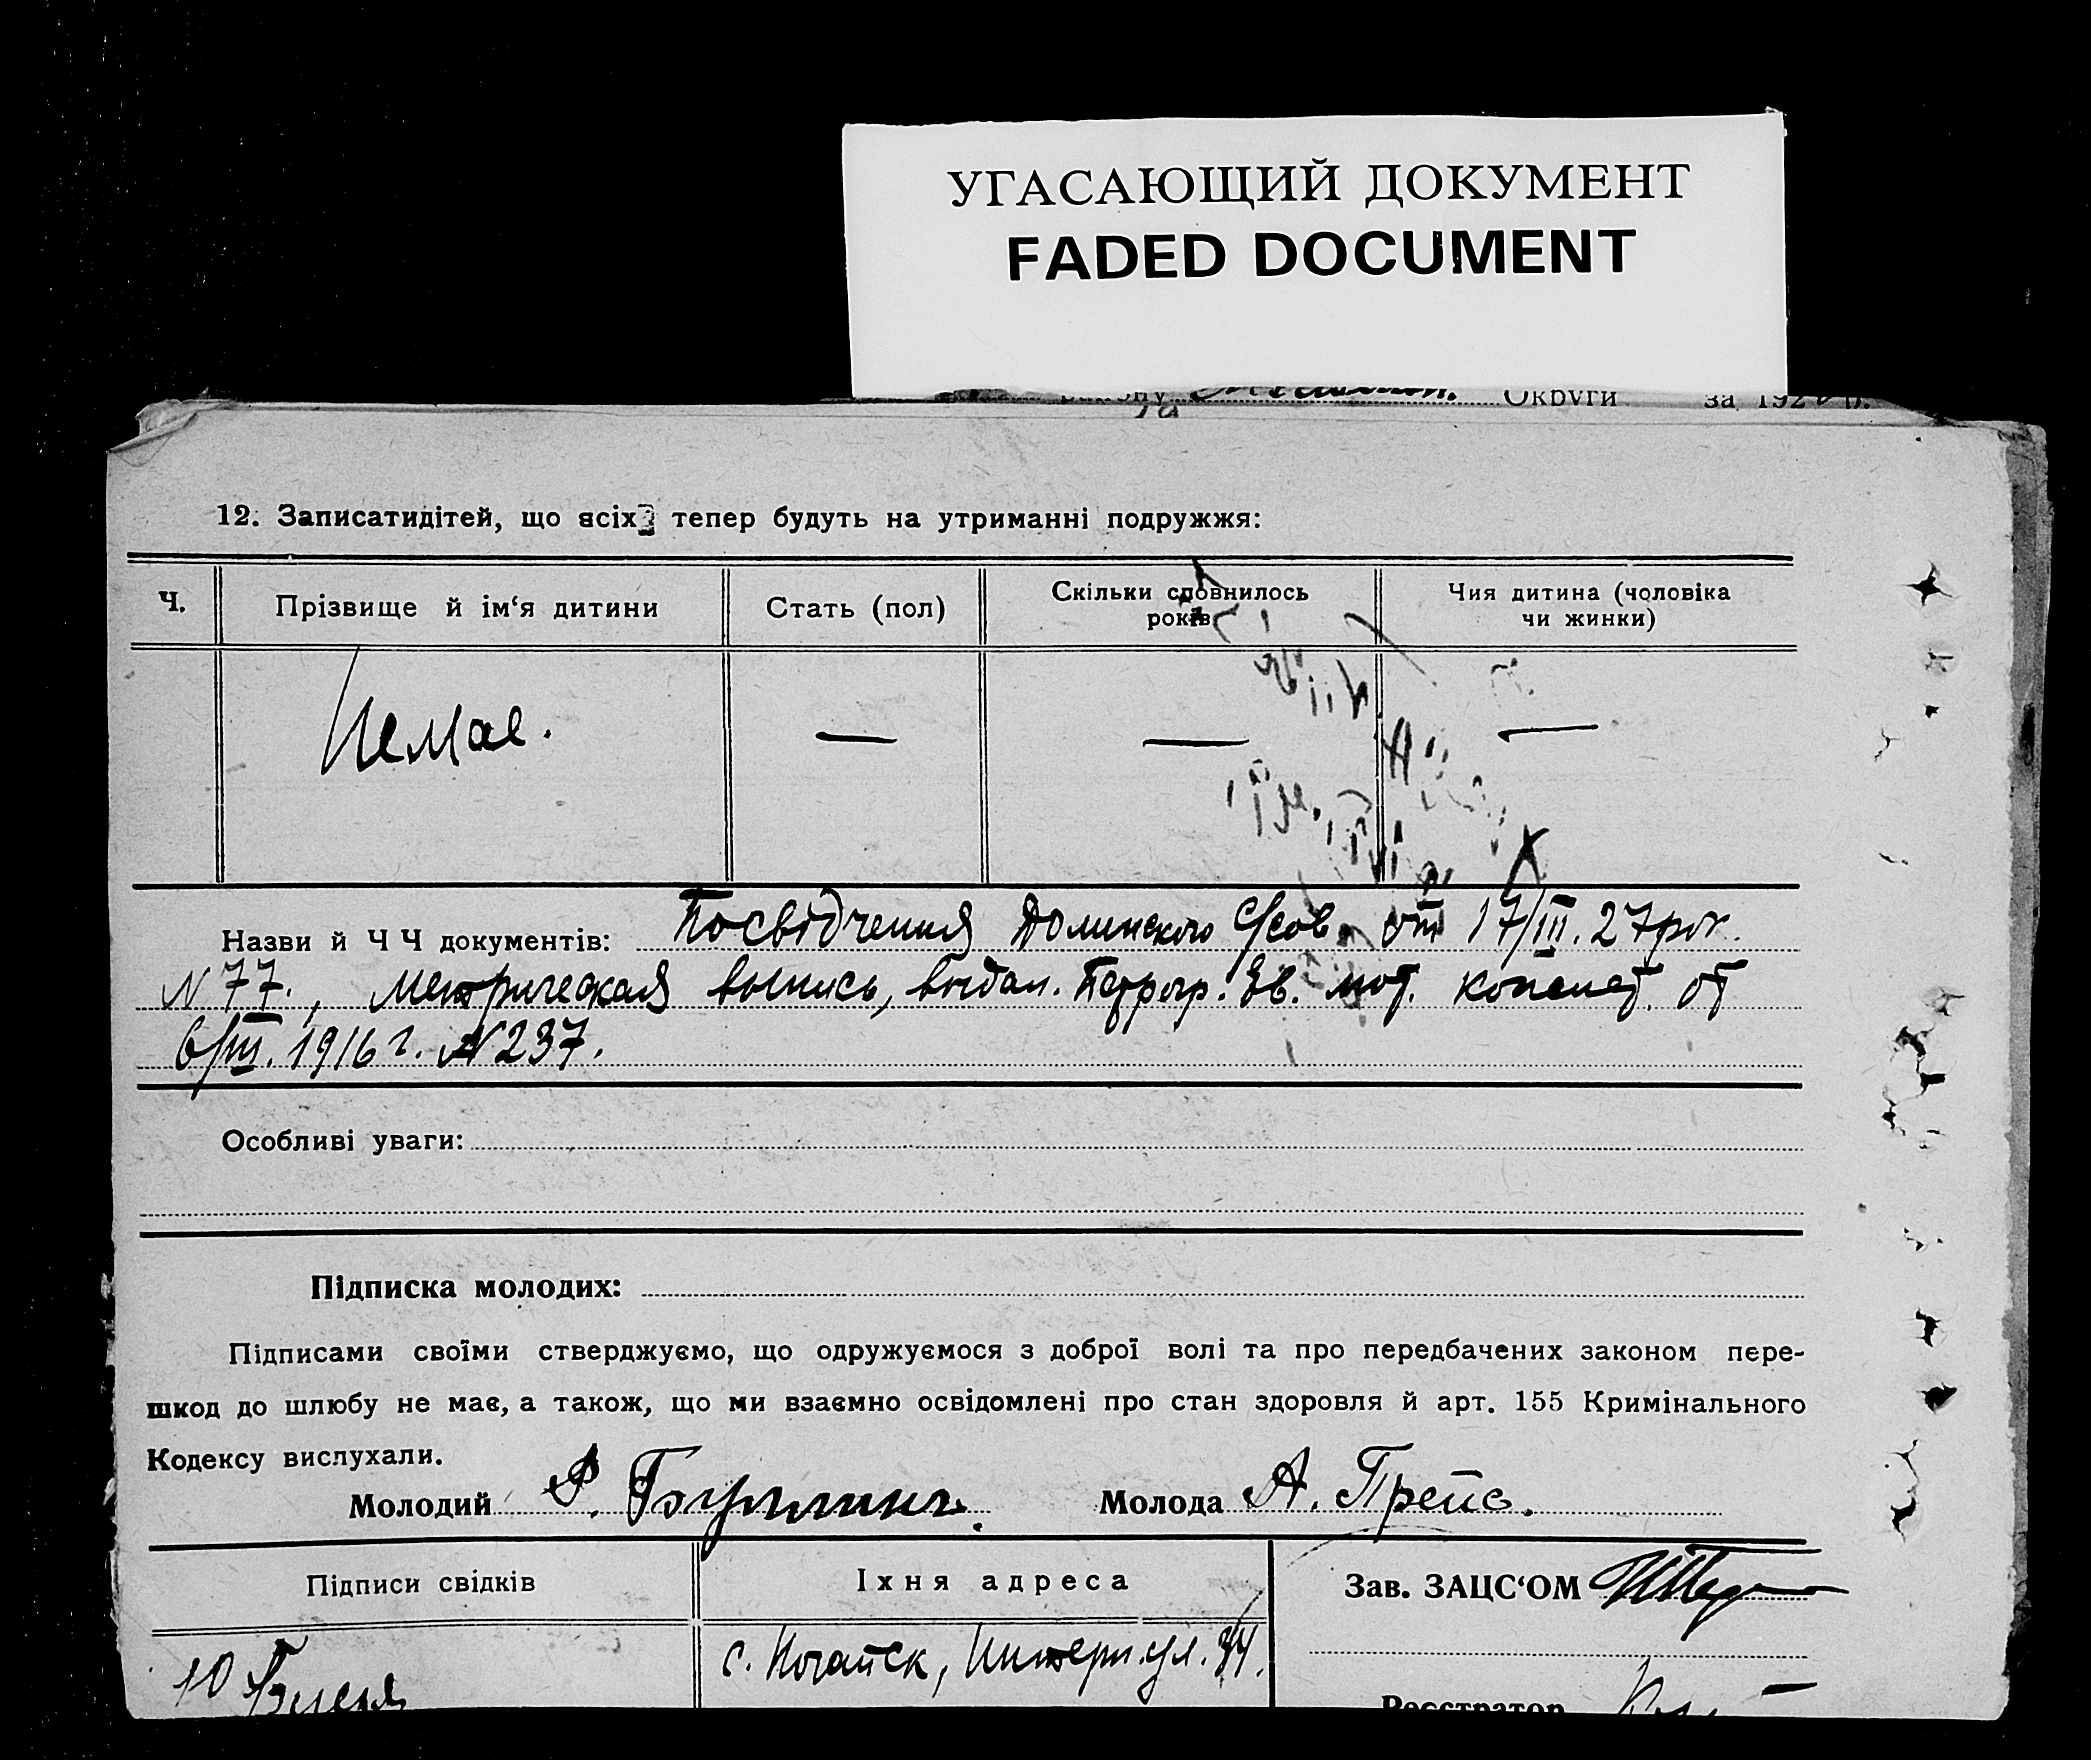 УГАСАЮЩИЙ ДОКУМЕНТ
FADED DOCUMENT
Округи за 192
12. Записатидітей, що всіх тепер будуть на утриманні подружжя:
Ч. Прізвище й ім‘я дитини Стать (пол) Скільки сповнилось років Чия дитина (чоловіка чи жинки)
Немае. — — —
Назви й ЧЧ документів: Посвідчения Долинского С/сов. от 17/III. 27 рок.
N 77., Метрическая выпись, выдан. Петрогр. Ев. от
6/III. 1916 г. N 237.
Особливі уваги:
Підписка молодих:
Підписами своїми стверджуємо, що одружуємося з доброї волі та про передбачених законом пере-
шкод до шлюбу не має, а також, що ми взаємно освідомлені про стан здоровля й арт. 155 Кримінального
Кодексу вислухали.
Молодий Молода А. Прейс.
Підписи свідків Їхня адреса Зав. ЗАЦС‘ОМ
с. Ногайск, Интерн. ул. 34.
Реєстратор